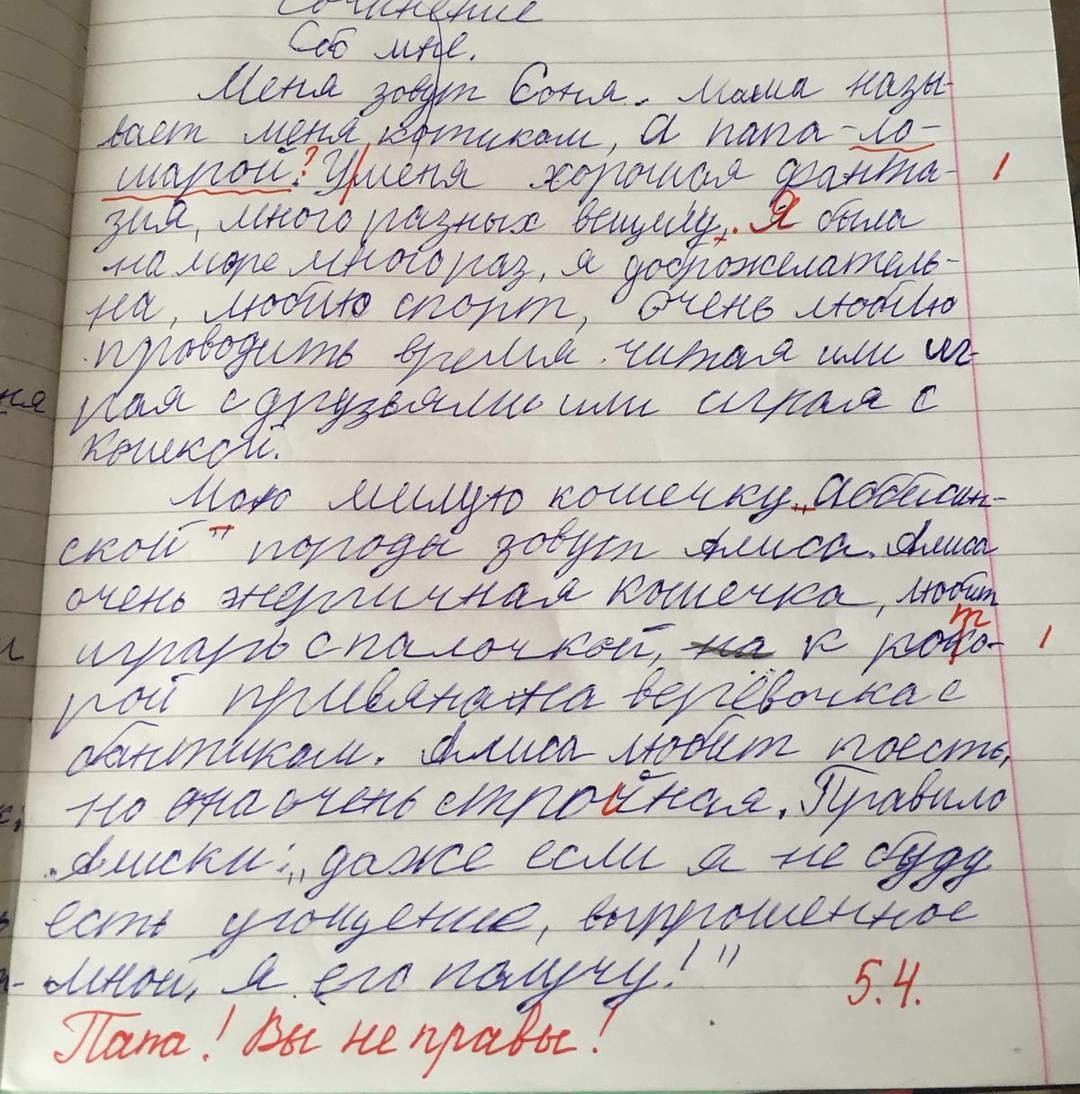 Сочинение
Обо мне.
Меня зовут Соня. Мама назы-
вает меня котиком, а папа - ло-
шарой.? У меня хорошая фанта- 1
зия, много разных вещей у. Я была
на море много раз, я доброжелатель-
на, люблю спорт, очень люблю
проводить время читая или иг-
рая с друзьями или играя с
кошкой.
Мою милую кошечку „Аббисин-
ской" породы зовут Алиса. Алиса
очень энергичная кошечка, любит
играть с палочкой, на к которой 1
рой привязана верёвочка с
бантиком. Алиса любит поесть,
но она очень стройная. Правило
Алиски: „даже если я не буду
есть угощение, выпрошенное
мной, я его получу!"
5.4.
Папа! Вы не правы!